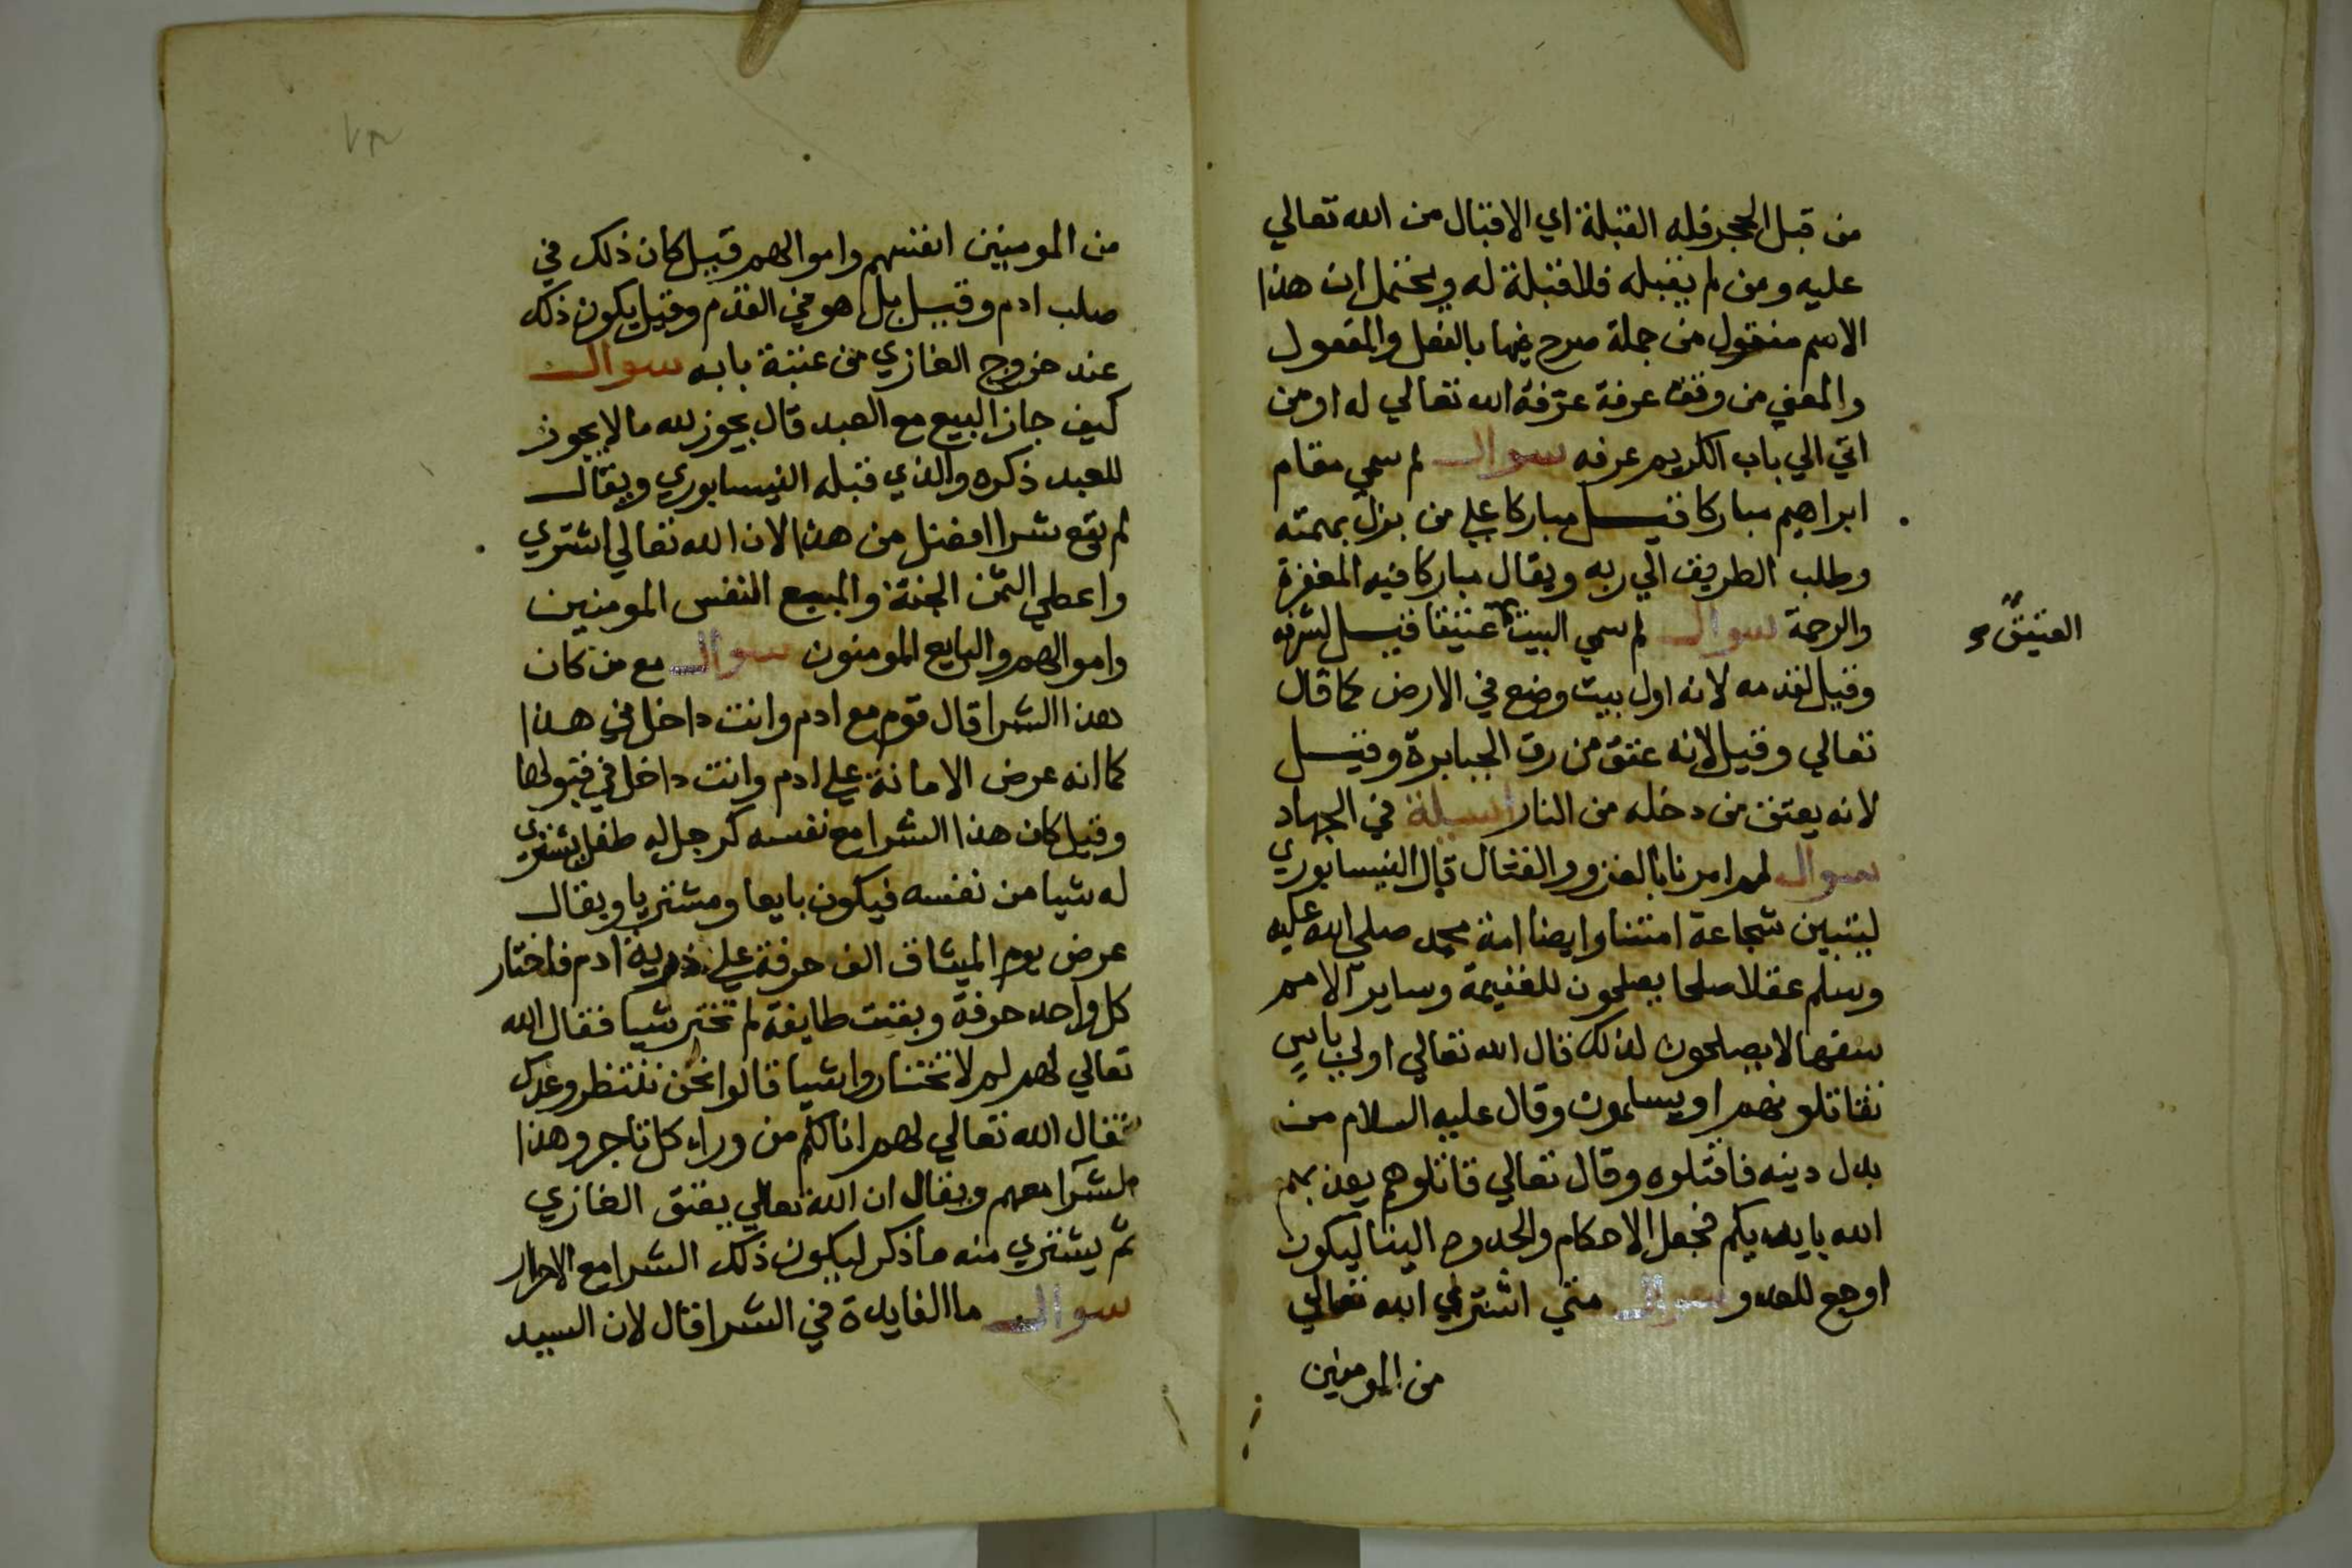 من قبل الحجر فله القبلة اي الاقبال من الله تعالي
عليه ومن لم يقبله فلا قبلة له ويحتمل ان هذا
الاسم منقول من جملة صرح فيها بالفعل والمفعول
والمعني من وقف عرفة عرّفه الله تعالي له او من
اتي الي باب الكريم عرفه سوال لم سمي مقام
ابراهيم مباركا قيل مباركا علي من نزل بهمته
وطلب الطريق الي ربه ويقال مباركا فيه المغفرة
والرحمة سوال لم سمي البيت عتيقا قيل لشرفه
العتيق
وقيل لقدمه لانه اول بيت وضع في الارض كما قال
تعالي وقيل لانه عتق من رق الجبابرة وقيل
لانه يعتق من دخله من النار اسيلة في الجهاد
سوال لم امرنا بالغزو والقتال قال النيسابوري
ليتبين شجاعة امتنا وايضا امة محمد صلي الله عليه
وسلم عقلا صلحا يصلحون للغنيمة وساير الامم
سفها لا يصلحون لذلك قال الله تعالي اولي باسٍ
تقاتلونهم او يسلمون وقال عليه السلام من
بدل دينه فاقتلوه وقال تعالي قاتلوهم يعذبهم
الله بايديكم فجعل الاحكام والحدود الينا ليكون
اوجع للعدو سوال متي اشتري الله تعالي
من المومنين
من المومنين انفسهم واموالهم قيل كان ذلك في
صلب ادم وقيل بل هو في القدم وقيل يكون ذلك
عند خروج الغازي من عتبة بابه سوال
كيف جاز البيع مع العبد قال يجوز لله ما لا يجوز
للعبد ذكره والذي قبله النيسابوري ويقال
لم يقع شرا افضل من هذا لان الله تعالي اشتري
واعطي الثمن الجنة والمبيع النفس المومنين
واموالهم والبايع المومنون سوال مع من كان
هذا الشرا قال قوم مع ادم وانت داخل في هذا
كما انه عرض الامانة علي ادم وانت داخل في قبولها
وقيل كان هذا الشرا مع نفسه كرجل له طفل يشتري
له شيا من نفسه فيكون بايعا ومشتريا ويقال
عرض يوم الميثاق الف حرفة علي ذرية ادم فاختار
كل واحد حرفة وبقيت طايفة لم تختر شيا فقال الله
تعالي لهم لم لا تختاروا شيا قالوا نحن ننتظر وعدك
فقال الله تعالي لهم انا لكم من وراء كل تاجر وهذا
الشرا معهم ويقال ان الله تعالي يعتق الغازي
ثم يشتري منه ما ذكر ليكون ذلك الشرا مع الاحرار
سوال ما الفايدة في الشرا قال لان السيد